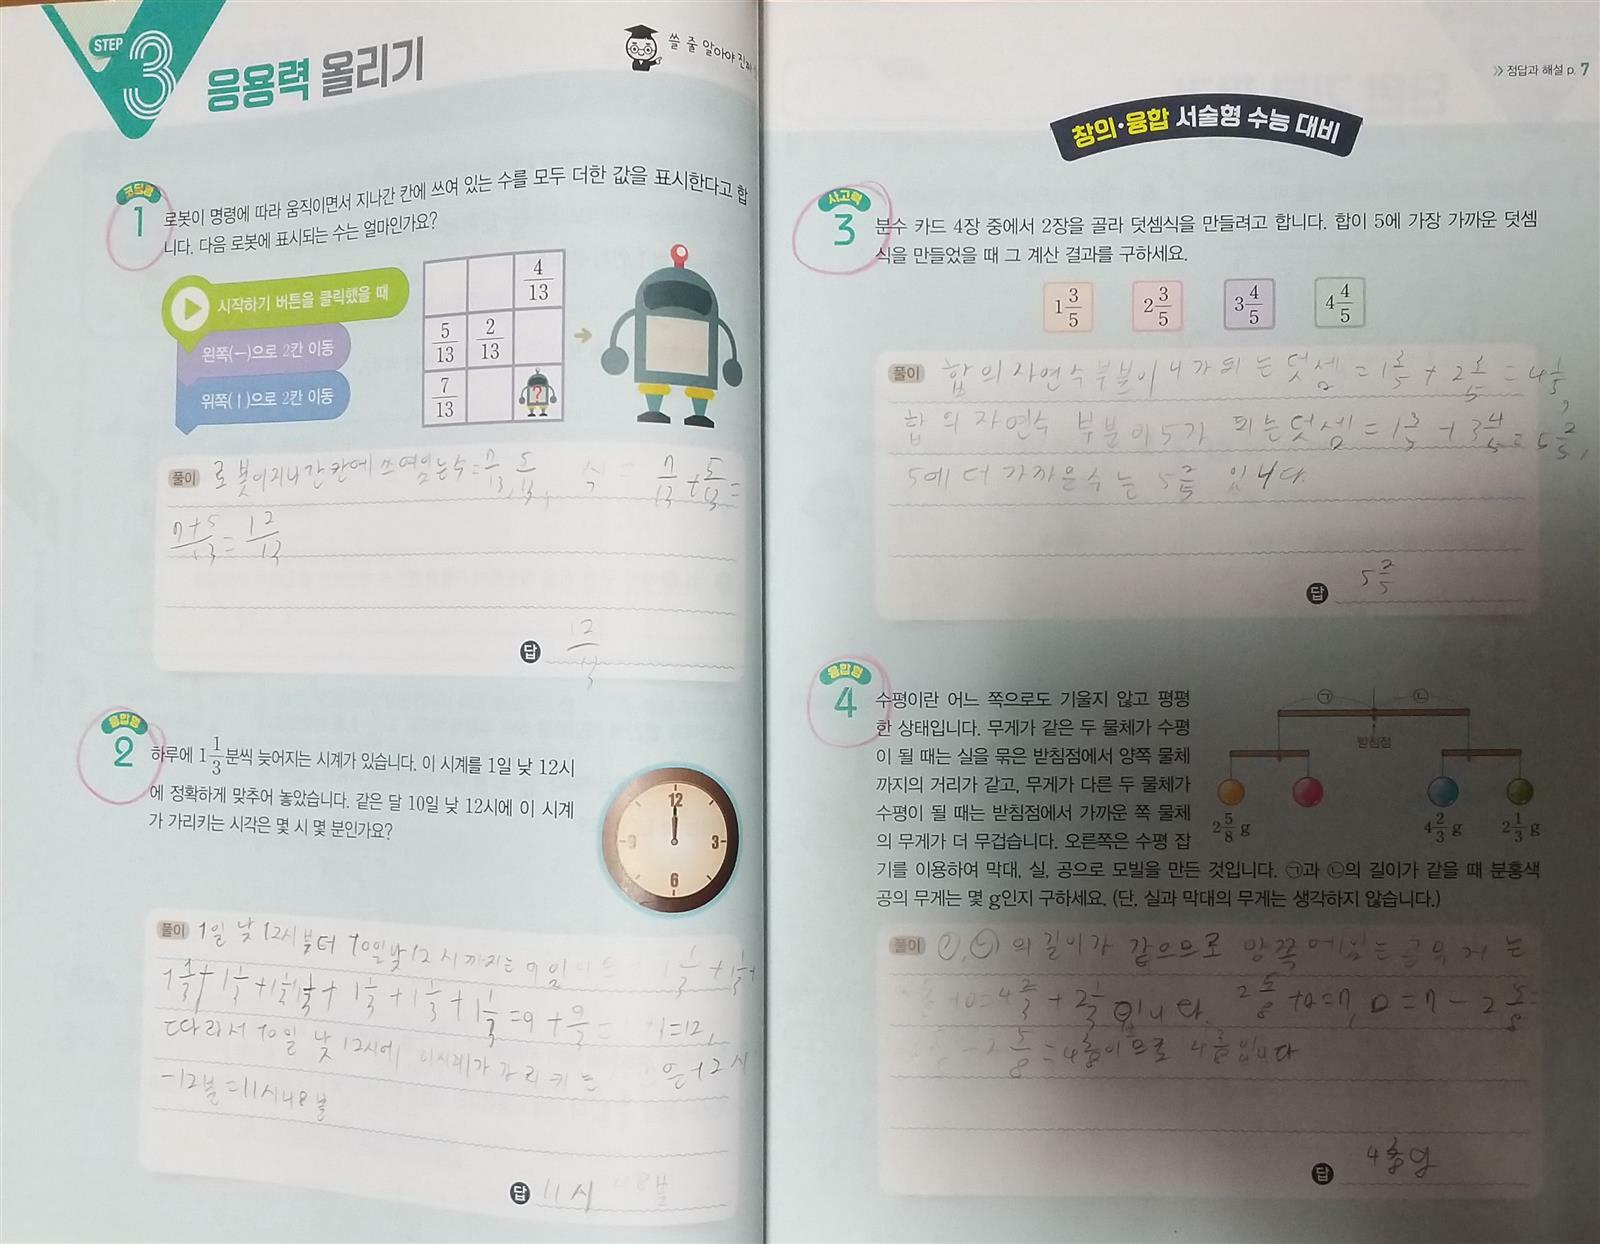 STEP 3 응용력 올리기
쓸 줄 알아야 진짜
코딩형
1
로봇이 명령에 따라 움직이면서 지나간 칸에 쓰여 있는 수를 모두 더한 값을 표시한다고 합
니다. 다음 로봇에 표시되는 수는 얼마인가요?
시작하기 버튼을 클릭했을 때
왼쪽(←)으로 2칸 이동
위쪽(↑)으로 2칸 이동
4/13
5/13 2/13
7/13 ?
풀이 로봇이 지나간 칸에 쓰여있는 수 = 7/13, 5/13, 식 = 7/13 + 5/13 =
7+5/13 = 12/13
답 12/13
융합형
2
하루에 1 1/3분씩 늦어지는 시계가 있습니다. 이 시계를 1일 낮 12시
에 정확하게 맞추어 놓았습니다. 같은 달 10일 낮 12시에 이 시계
가 가리키는 시각은 몇 시 몇 분인가요?
12
9 3
6
풀이 1일 낮 12시부터 10일 낮 12시까지는 9일 1 1/3 + 1 1/3 +
1 1/3 + 1 1/3 + 1 1/3 + 1 1/3 + 1 1/3 + 1 1/3 + 1 1/3 = 9 + 9/3 = = 12,
따라서 10일 낮 12시에 이 시계가 가리키는 은 12시
-12분 = 11시 48분
답 11시 48분
≫ 정답과 해설 p. 7
창의·융합 서술형 수능 대비
사고력
3
분수 카드 4장 중에서 2장을 골라 덧셈식을 만들려고 합니다. 합이 5에 가장 가까운 덧셈
식을 만들었을 때 그 계산 결과를 구하세요.
1 3/5 2 3/5 3 4/5 4 4/5
풀이 합의 자연수 부분이 4가 되는 덧셈 = 1 3/5 + 2 3/5 = 4 1/5,
합의 자연수 부분이 5가 되는 덧셈 = 1 3/5 + 3 4/5 = 5 2/5,
5에 더 가까운 수는 5 2/5 입니다.
답 5 2/5
융합형
4
수평이란 어느 쪽으로도 기울지 않고 평평
한 상태입니다. 무게가 같은 두 물체가 수평
이 될 때는 실을 묶은 받침점에서 양쪽 물체
까지의 거리가 같고, 무게가 다른 두 물체가
수평이 될 때는 받침점에서 가까운 쪽 물체
의 무게가 더 무겁습니다. 오른쪽은 수평 잡
기를 이용하여 막대, 실, 공으로 모빌을 만든 것입니다. ㉠과 ㉡의 길이가 같을 때 분홍색
공의 무게는 몇 g인지 구하세요. (단, 실과 막대의 무게는 생각하지 않습니다.)
㉠ ㉡
받침점
2 5/8 g 4 2/3 g 2 1/3 g
풀이 ㉠, ㉡의 길이가 같으므로 양쪽에 있는 공 무게는
+ㅁ = 4 2/3 + 2 1/3 입니다. 2 5/8 + ㅁ = 7, ㅁ = 7 - 2 5/8 =
- 2 5/8 = 4 3/8 이므로 4 3/8 입니다
답 4 3/8 g